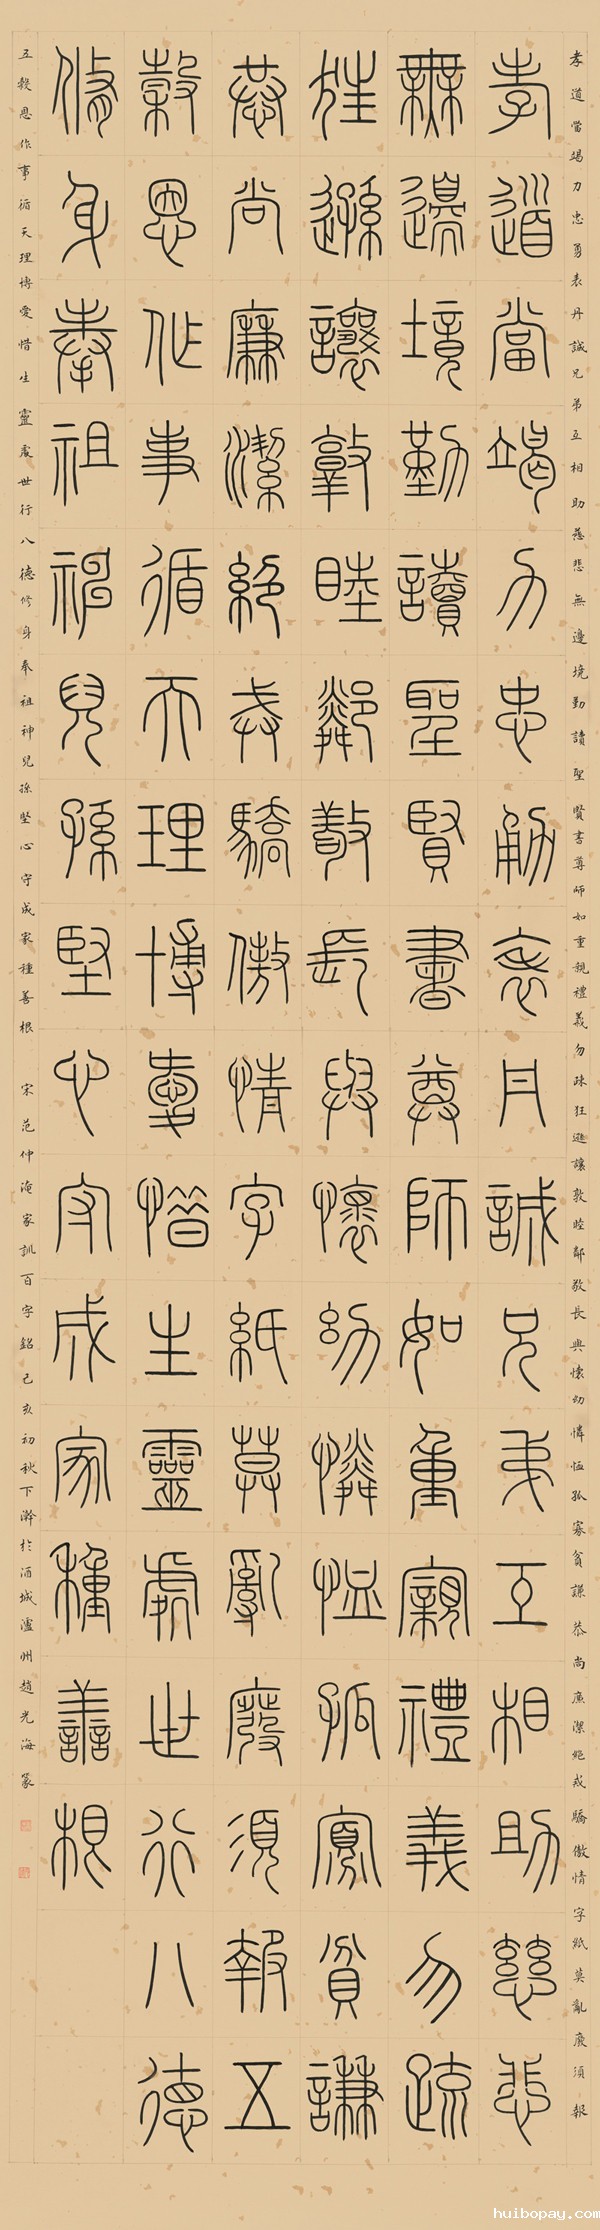 孝道當竭力忠勇表丹誠兄弟互相助慈悲無邊境勤讀聖賢書尊師如重親禮義勿疎狂遜讓敦睦鄰敬長與懷幼憐恤孤寡貧謙恭尚廉潔絕戒驕傲情字紙莫亂廢須報
孝道當竭力忠勇表丹誠兄弟互相助慈悲
無邊境勤讀聖賢書尊師如重親禮義勿疏
狂遜讓敦睦鄰敬長與懷幼憐恤孤寡貧謙
恭尚廉潔絕戒驕傲情字紙莫亂廢須報五
穀恩作事循天理博愛惜生靈處世行八德
修身奉祖神兒孫堅心守成家種善根
五穀恩作事循天理博愛惜生靈處世行八德修身奉祖神兒孫堅心守成家種善根 宋范仲淹家訓百字銘己亥初秋下澣於酒城瀘州趙光海篆
huibopay.com